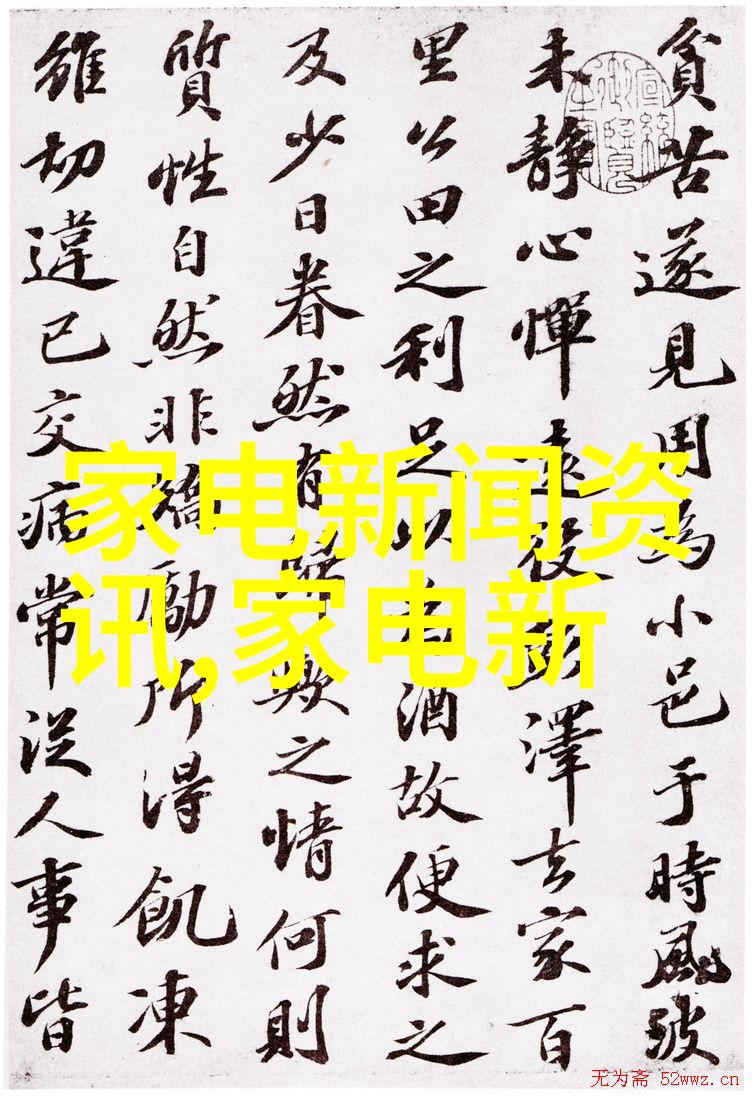 貧苦遂見用為小邑于時風波
未静心憚遠役彭澤去家百
里公田之利足以為酒故便求之
及少日眷然有歸歟之情何則
質性自然非矯勵所得飢凍
雖切違己交病常從人事皆
家电新闻资
讯,家电新
无为斋 52wwz.cn